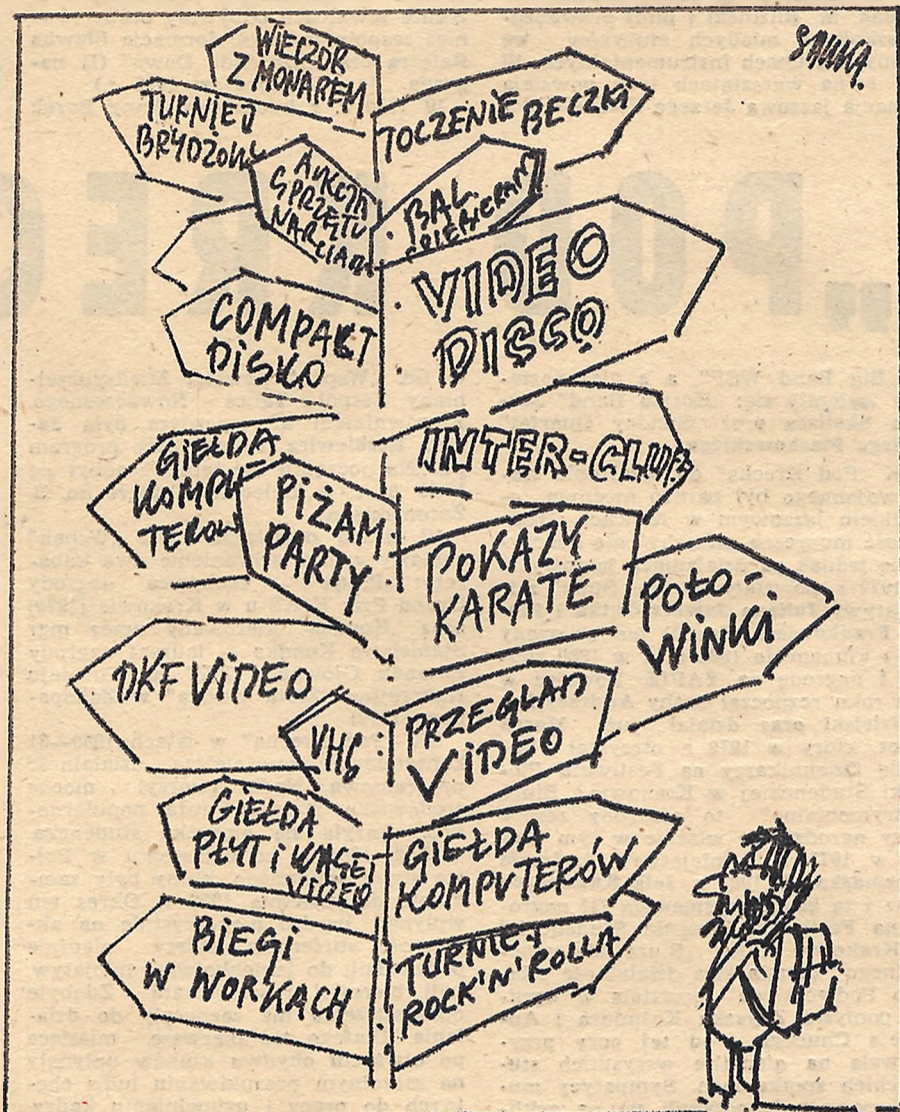 SAWKA.
WIECZÓR
Z MONAREM
TOCZENIE BECZKI
TURNIEJ
BRYDŻOWY
AUKCJA
SPRZĘTU
NARCIAR.
BAL
VIDEO
DISCO
COMPAKT
DISKO
INTER-CLUB
GIEŁDA
KOMPU
TERÓW
PIŻAM
PARTY
POKAZY
KARATE
POŁO-
WINKI
DKF VIDEO
VHS
PRZEGLĄD
VIDEO
GIEŁDA
PŁYT I KASET
VIDEO
GIEŁDA
KOMPUTERÓW
BIEGI
W WORKACH
TURNIEJ
ROCK'N'ROLLA